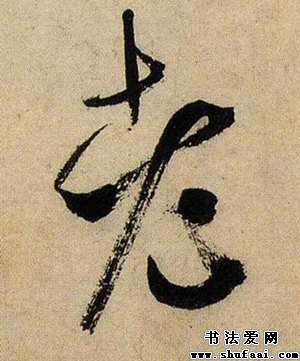 老
书法爱网
www.shufaai.com